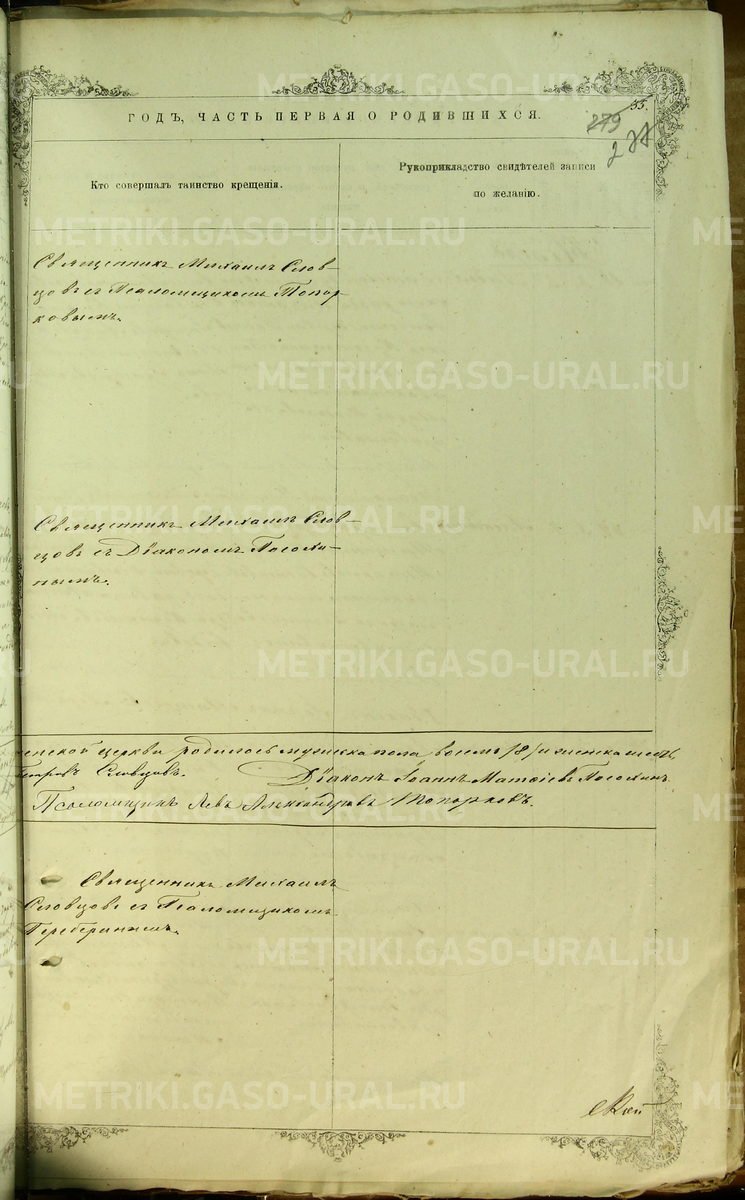 55.
279
277
ГОДЪ, ЧАСТЬ ПЕРВАЯ О РОДИВШИХСЯ.
Кто совершалъ таинство крещенія.
Рукоприкладство свидѣтелей записи
по желанію.
Священникъ Михаилъ Слов-
цовъ съ Псаломщикомъ Топор
ковымъ.
Священникъ Михаилъ Слов-
цовъ съ Діакономъ Посохи-
нымъ.
церкви родилось мужеска пола восемь (8) и женска
Петровъ Словцовъ. Діаконъ Іоаннъ Матѳіевъ Посохинъ
Псаломщикъ Левъ Александровъ Топорковъ.
Священникъ Михаилъ
Словцовъ съ Псаломщикомъ
METRIKI.GASO-URAL.RU